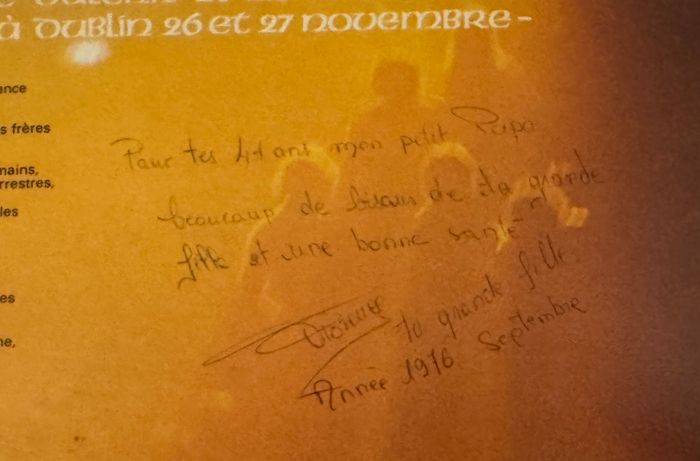 à DUBLIN 26 et 27 NOVEMBRE -
ance
s frères
mains,
rrestres,
les
es
ne,
Pour tes 41 ans mon petit Papa
beaucoup de bisous de ta grande
fille et une bonne santé
ta grande fille
Année 1976 Septembre